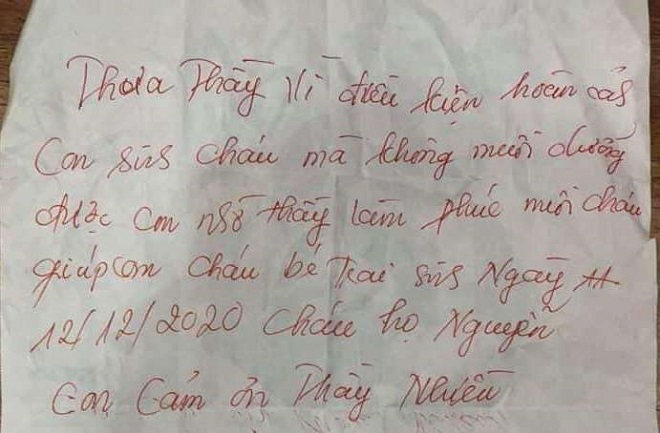 Thưa Thầy Vì điều kiện hoàn cả
Con sins cháu mà không nuôi dưỡng
được con nhờ thầy làm phúc nuôi cháu
giúp con cháu bé trai sins Ngày
12/12/2020 Cháu họ Nguyễn
Con Cảm ơn Thầy Nhiều